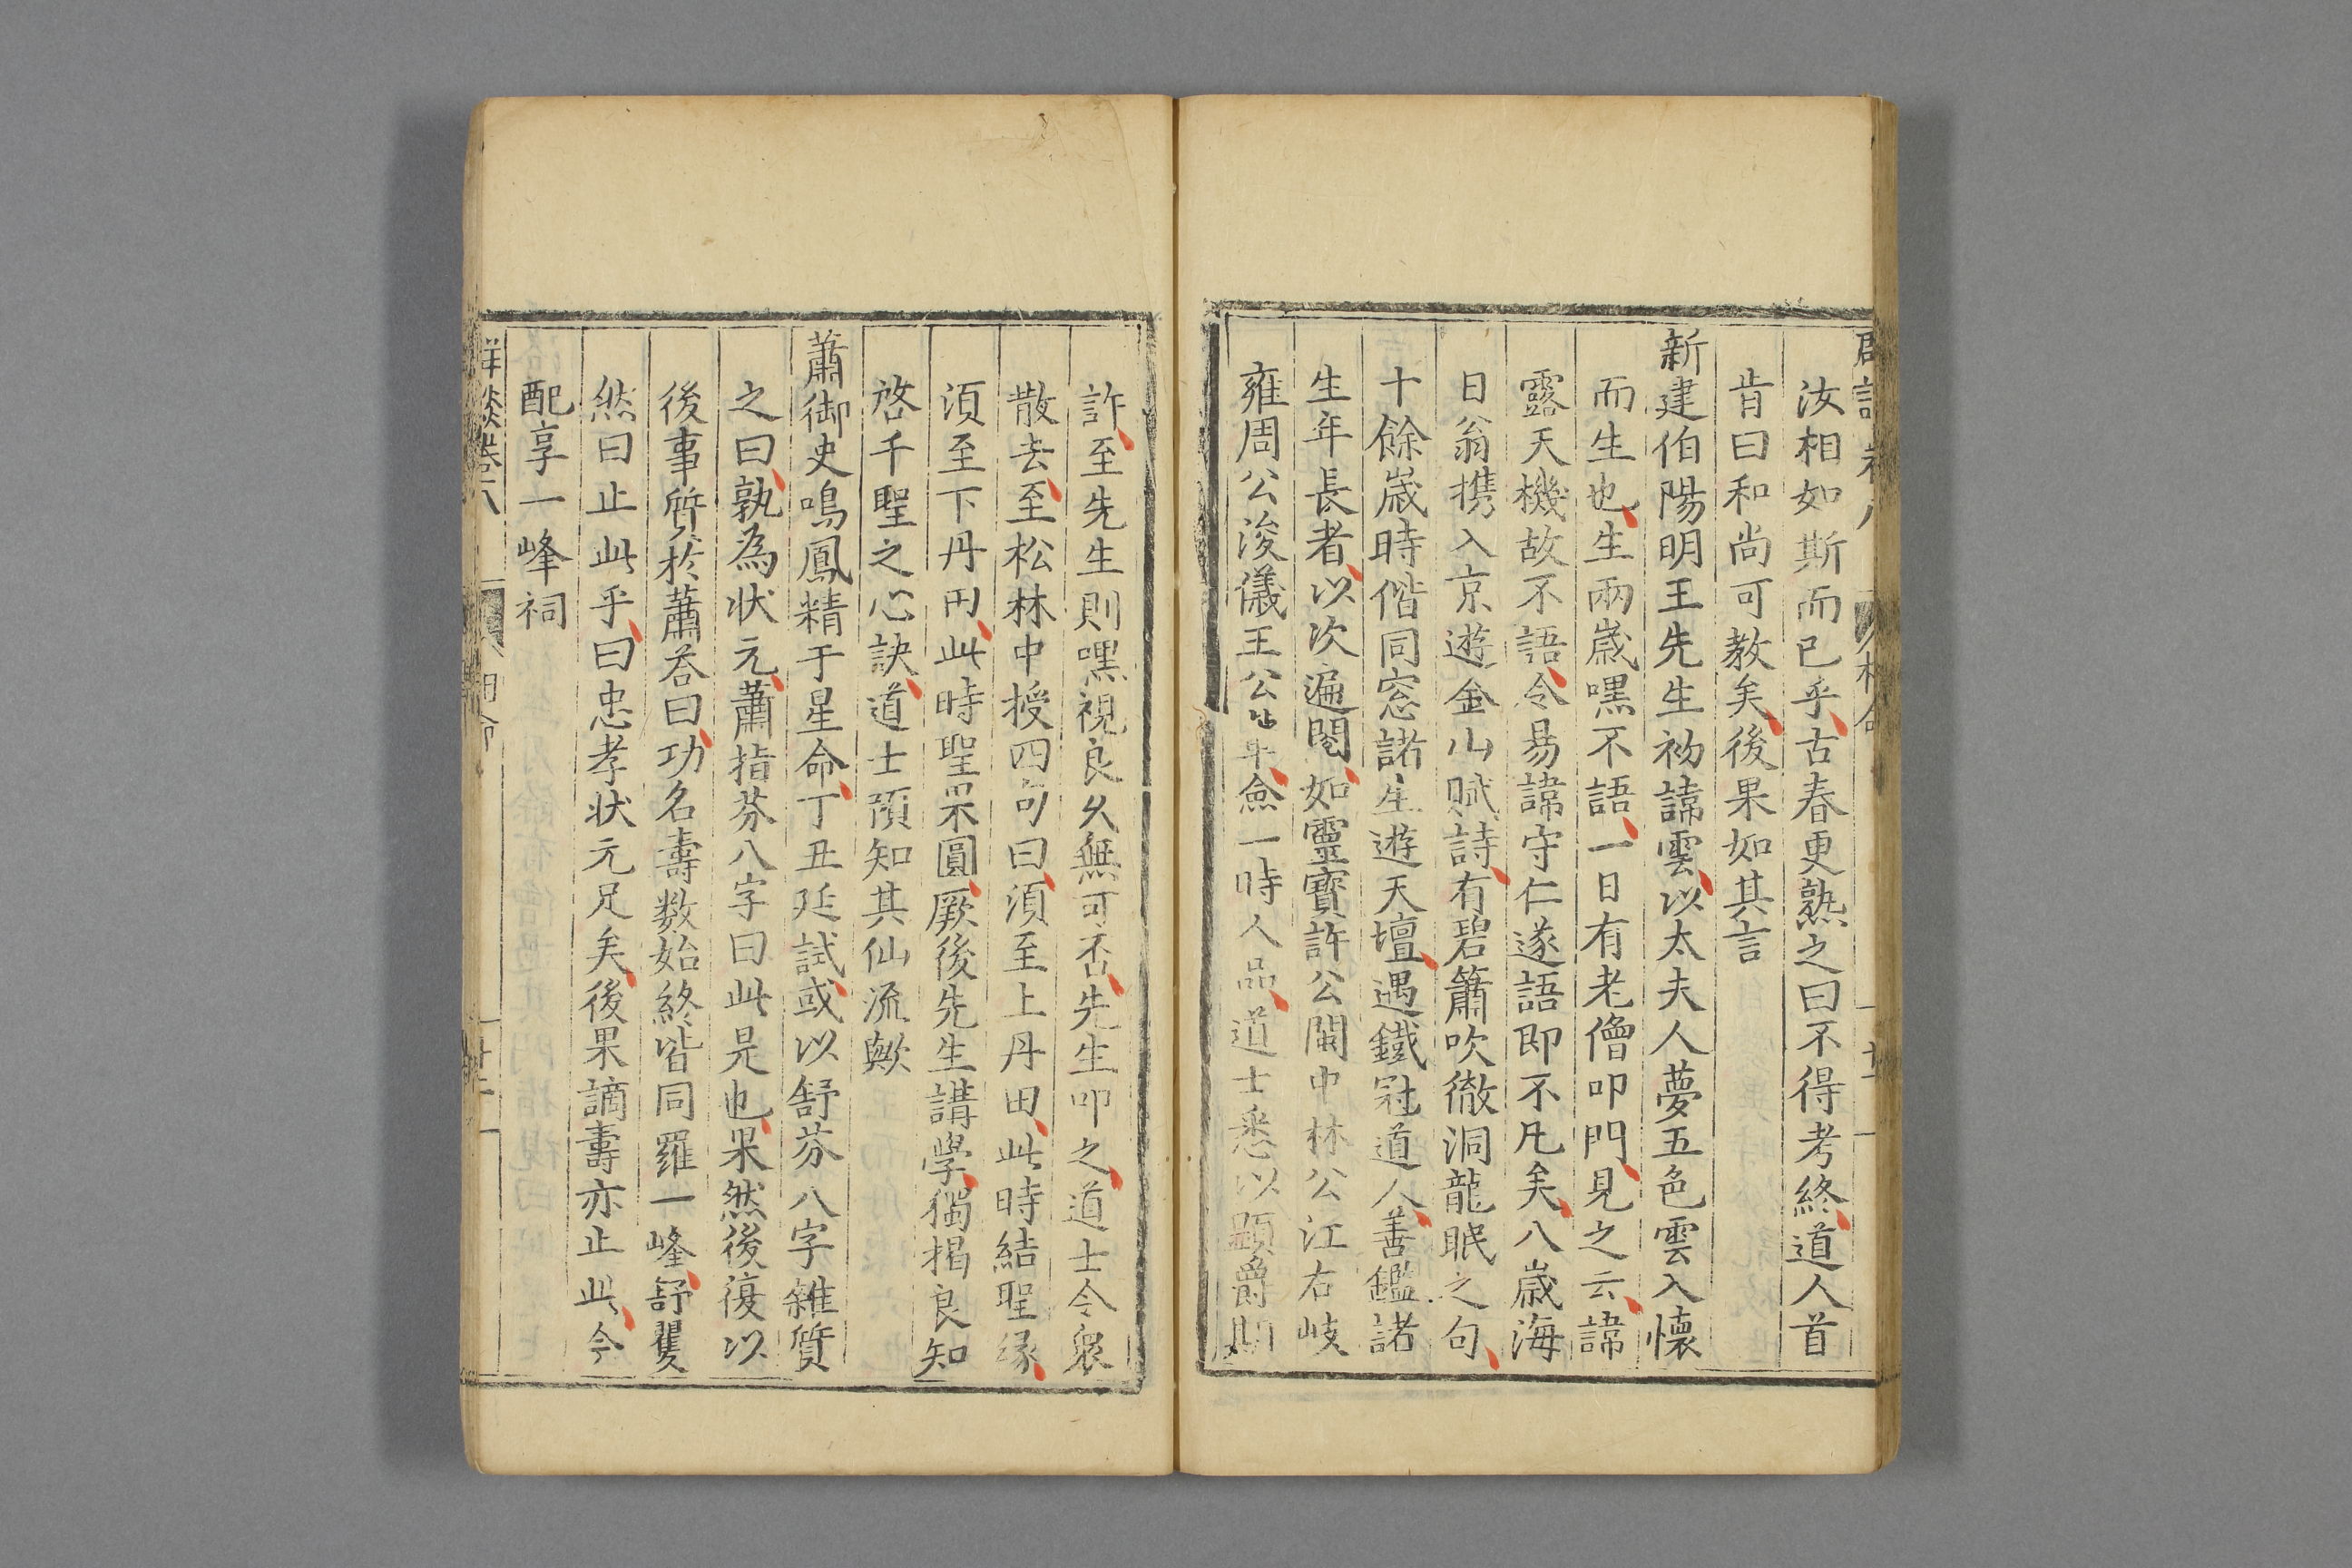 汝相如斯而已乎古春更熟之曰不得考終道人首
肯曰和尚可教矣後果如其言
新建伯陽明王先生初諱雲以太夫人夢五色雲入懷
而生也生兩歲嘿不語一日有老僧叩門見之云諱
露天機故不語令易諱守仁遂語即不凡矣八歲海
日翁携入京遊金山賦詩有碧簫吹徹洞龍眠之句
十餘歲時偕同窓諸生遊天壇遇鐵冠道人善鑑諸
生年長者以次遍閱如靈寶許公閩中林公江右岐
雍周公浚儀王公軰僉一時人品道士悉以顯爵期
許至先生則嘿視良乆無可否先生叩之道士令衆
散去至松林中授四句曰湏至上丹田此時結聖緣
湏至下丹田此時聖果圓厥後先生講學獨揭良知
啓千聖之心訣道士預知其仙流歟
蕭御史鳴鳳精于星命丁丑廷試或以舒芬八字雜質
之曰孰為狀元蕭指芬八字曰此是也果然後復以
後事質於蕭答曰功名壽数始終皆同羅一峰舒矍
然曰止此乎曰忠孝狀元足矣後果謫壽亦止此今
配享一峰祠